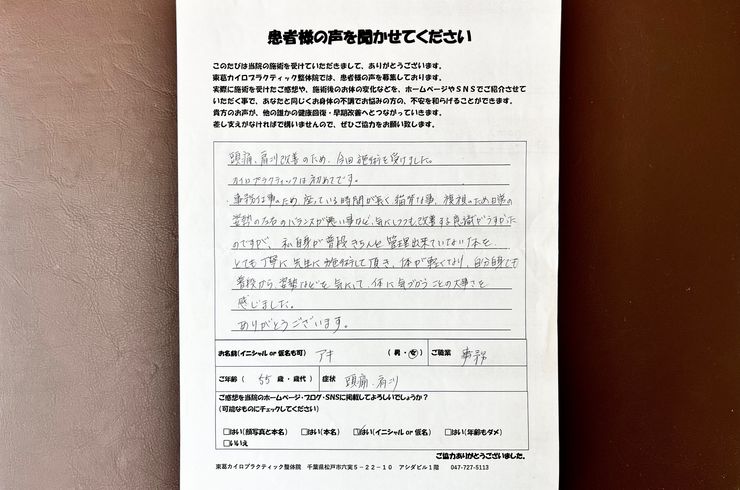 患者様の声を聞かせてください
このたびは当院の施術を受けていただきまして、ありがとうございます。
東葛カイロプラクティック整体院では、患者様の声を募集しております。
実際に施術を受けたご感想や、施術後のお体の変化などを、ホームページやSNSでご紹介させて
いただく事で、あなたと同じくお身体の不調でお悩みの方の、不安を和らげることができます。
貴方のお声が、他の誰かの健康回復・早期改善へとつながっていきます。
差し支えがなければで構いませんので、ぜひご協力をお願い致します。
頭痛、肩こり改善のため、今回施術を受けました。
カイロプラクティックは初めてです。
事務仕事のため、座っている時間が長く猫背な事、複視のため日常の
姿勢の左右のバランスが悪い事など、気にしつつも改善する意識がうすかった
のですが、私自身が普段きちんと管理出来ていない体を、
とても丁寧に先生に施術して頂き、体が軽くなり、自分自身でも
普段から、姿勢などを気にして、体に気づかうことの大事さを
感じました。
ありがとうございます。
お名前(イニシャル or 仮名も可) アキ (男・女) ご職業 事務
ご年齢 ( 55 歳・歳代) 症状 頭痛、肩こり
ご感想を当院のホームページ・ブログ・SNSに掲載してよろしいでしょうか?
(可能なものにチェックしてください)
□はい(顔写真と本名) □はい(本名) ☑はい(イニシャル or 仮名) □はい(年齢もダメ)
□いいえ
ご協力ありがとうございました。
東葛カイロプラクティック整体院 千葉県松戸市六実5-22-10 アシダビル1階 047-727-5113